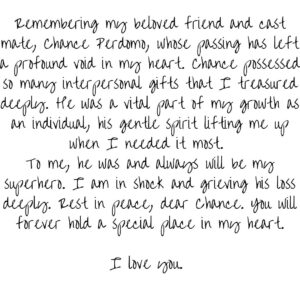 Remembering my beloved friend and cast
mate, Chance Perdomo, whose passing has left
a profound void in my heart. Chance possessed
so many interpersonal gifts that I treasured
deeply. He was a vital part of my growth as
an individual, his gentle spirit lifting me up
when I needed it most.
To me, he was and always will be my
superhero. I am in shock and grieving his loss
deeply. Rest in peace, dear Chance. You will
forever hold a special place in my heart.
I love you.